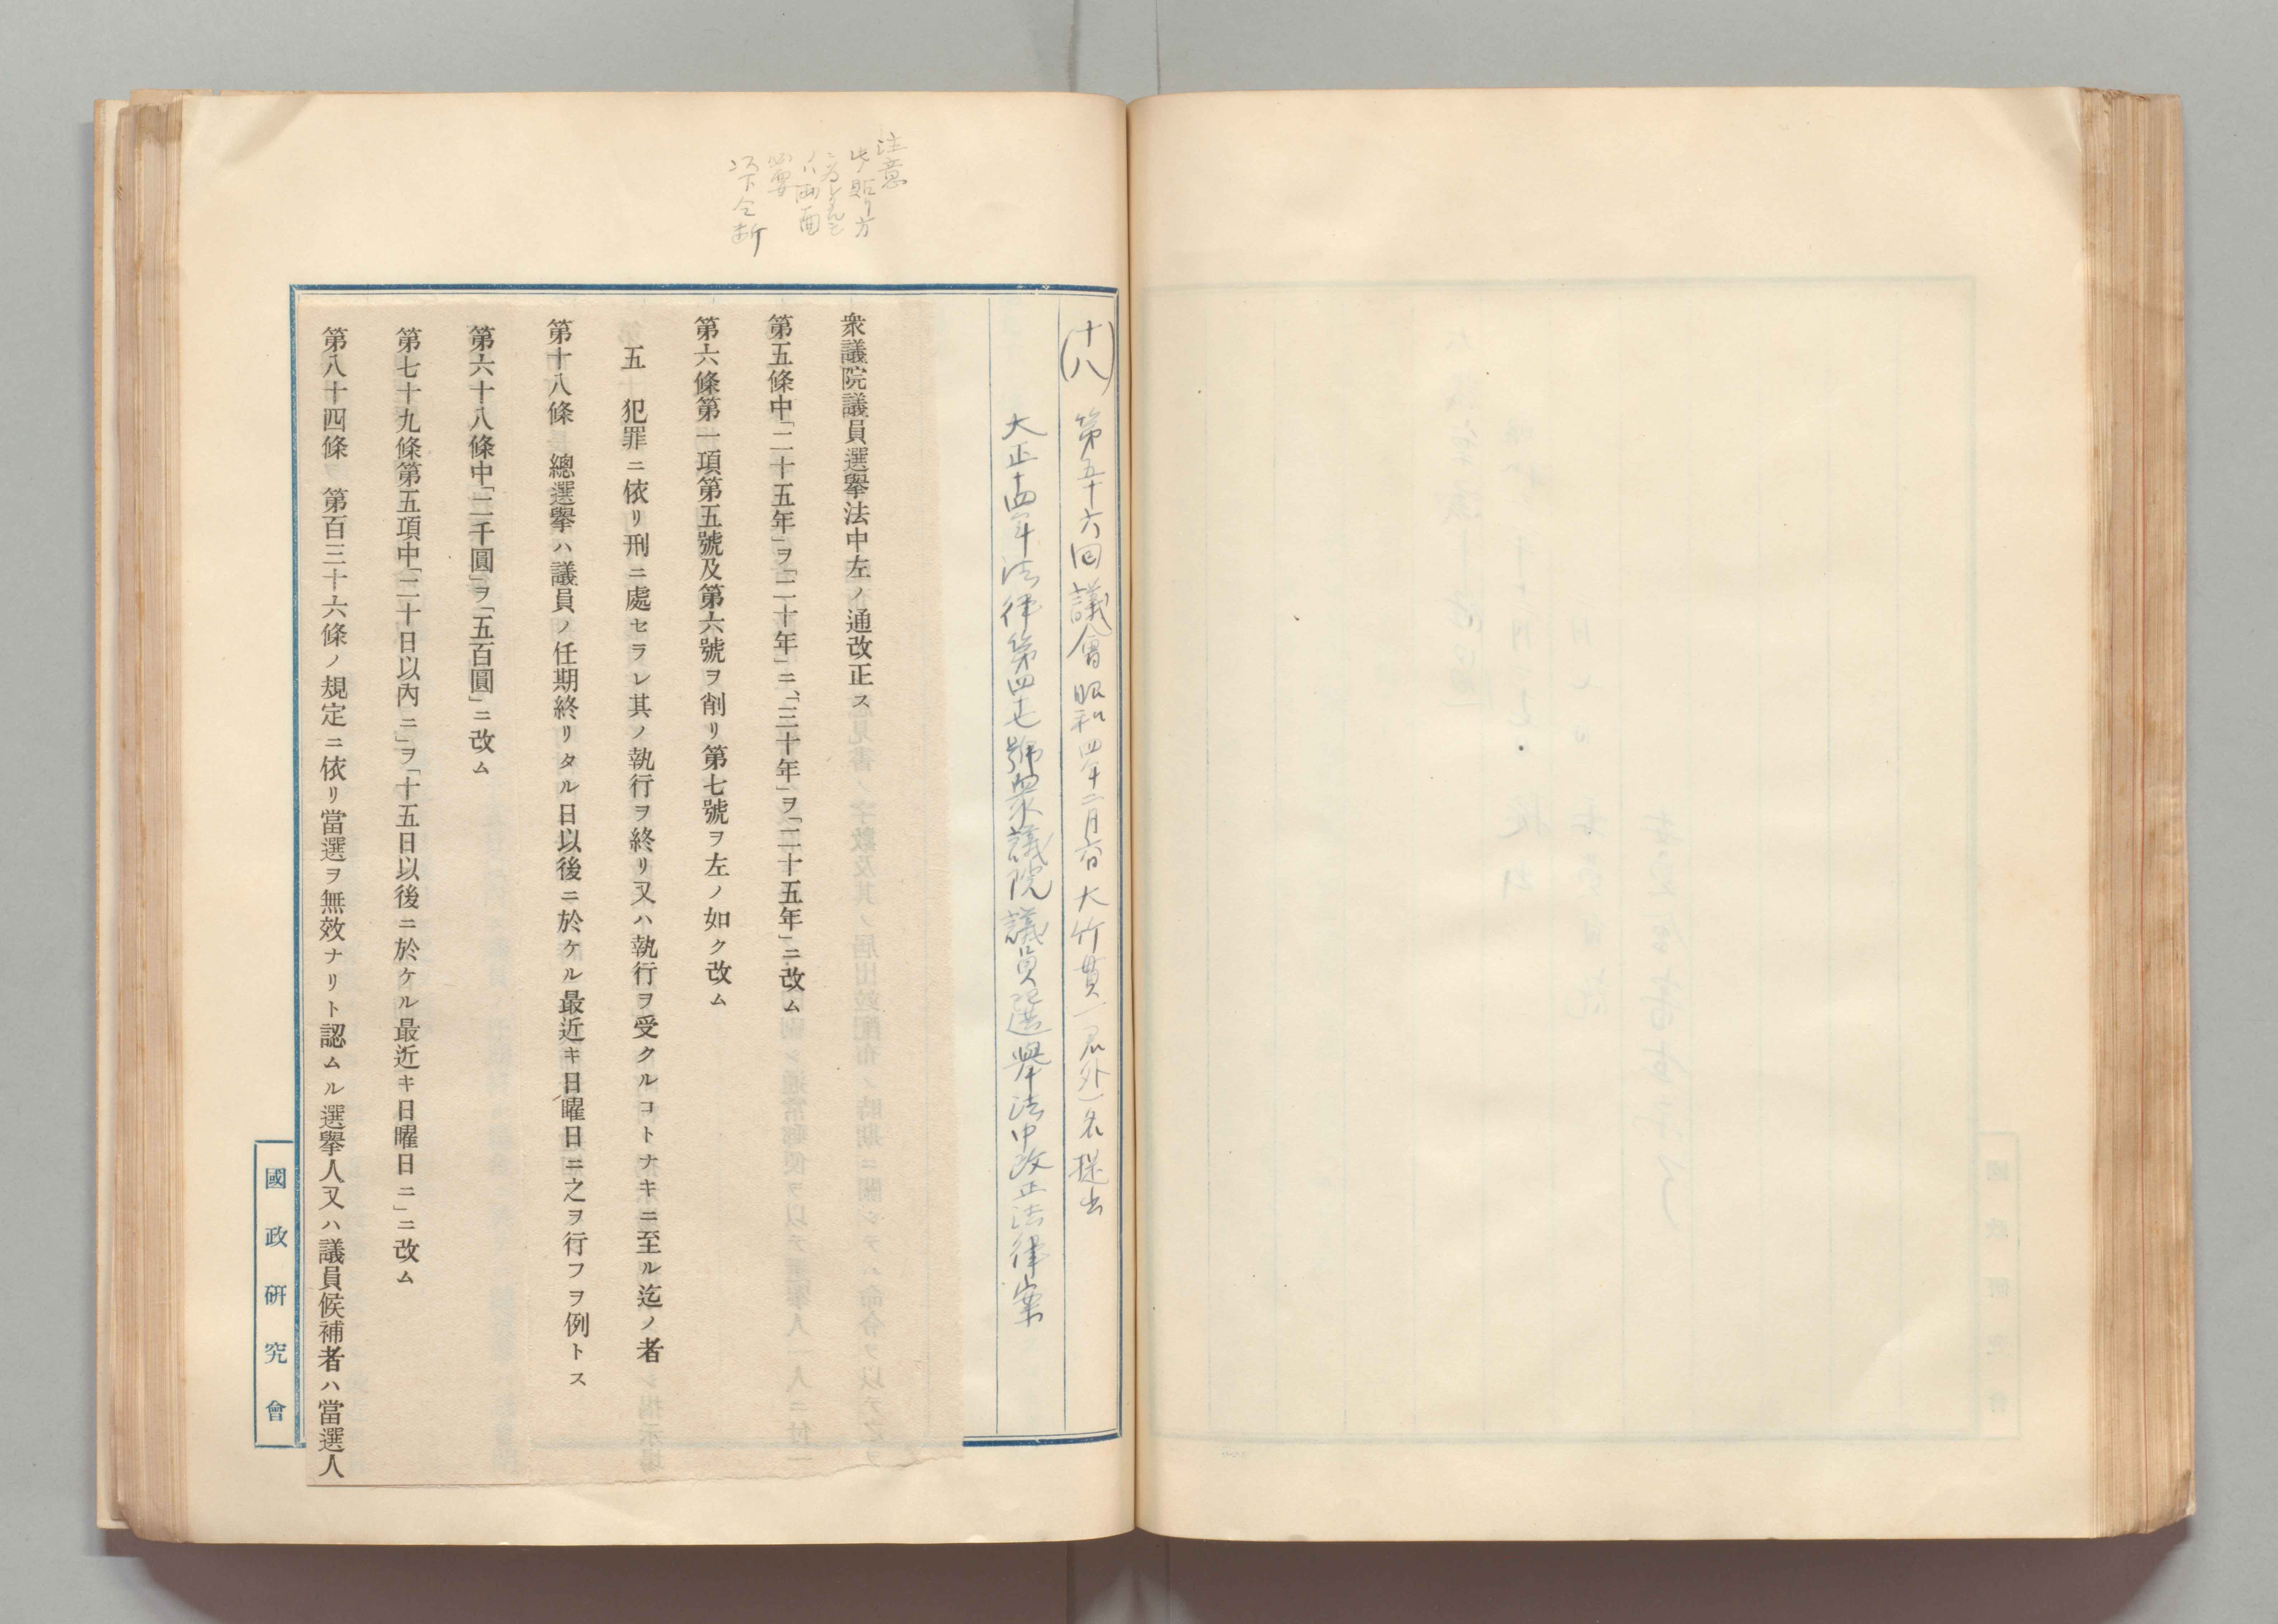 注意
此ノ貼り方
ハ両面
必要
以下仝断
(十八) 第五十六回議會昭和四年二月六日大竹貫一君外一名提出
大正十四年法律第四十七號衆議院議員選擧法中改正法律案
衆議院議員選擧法中左ノ通改正ス
第五條中「二十五年」ヲ「二十年」ニ、「三十年」ヲ「二十五年」ニ改ム
第六條第一項第五號及第六號ヲ削リ第七號ヲ左ノ如ク改ム
五 犯罪ニ依リ刑ニ處セラレ其ノ執行ヲ終リ又ハ執行ヲ受クルコトナキニ至ル迄ノ者
第十八條 總選擧ハ議員ノ任期終リタル日以後ニ於ケル最近キ日曜日ニ之ヲ行フヲ例トス
第六十八條中「二千圓」ヲ「五百圓」ニ改ム
第七十九條第五項中「二十日以內ニ」ヲ「十五日以後ニ於ケル最近キ日曜日ニ」ニ改ム
第八十四條 第百三十六條ノ規定ニ依リ當選ヲ無效ナリト認ムル選擧人又ハ議員候補者ハ當選人
國政研究會